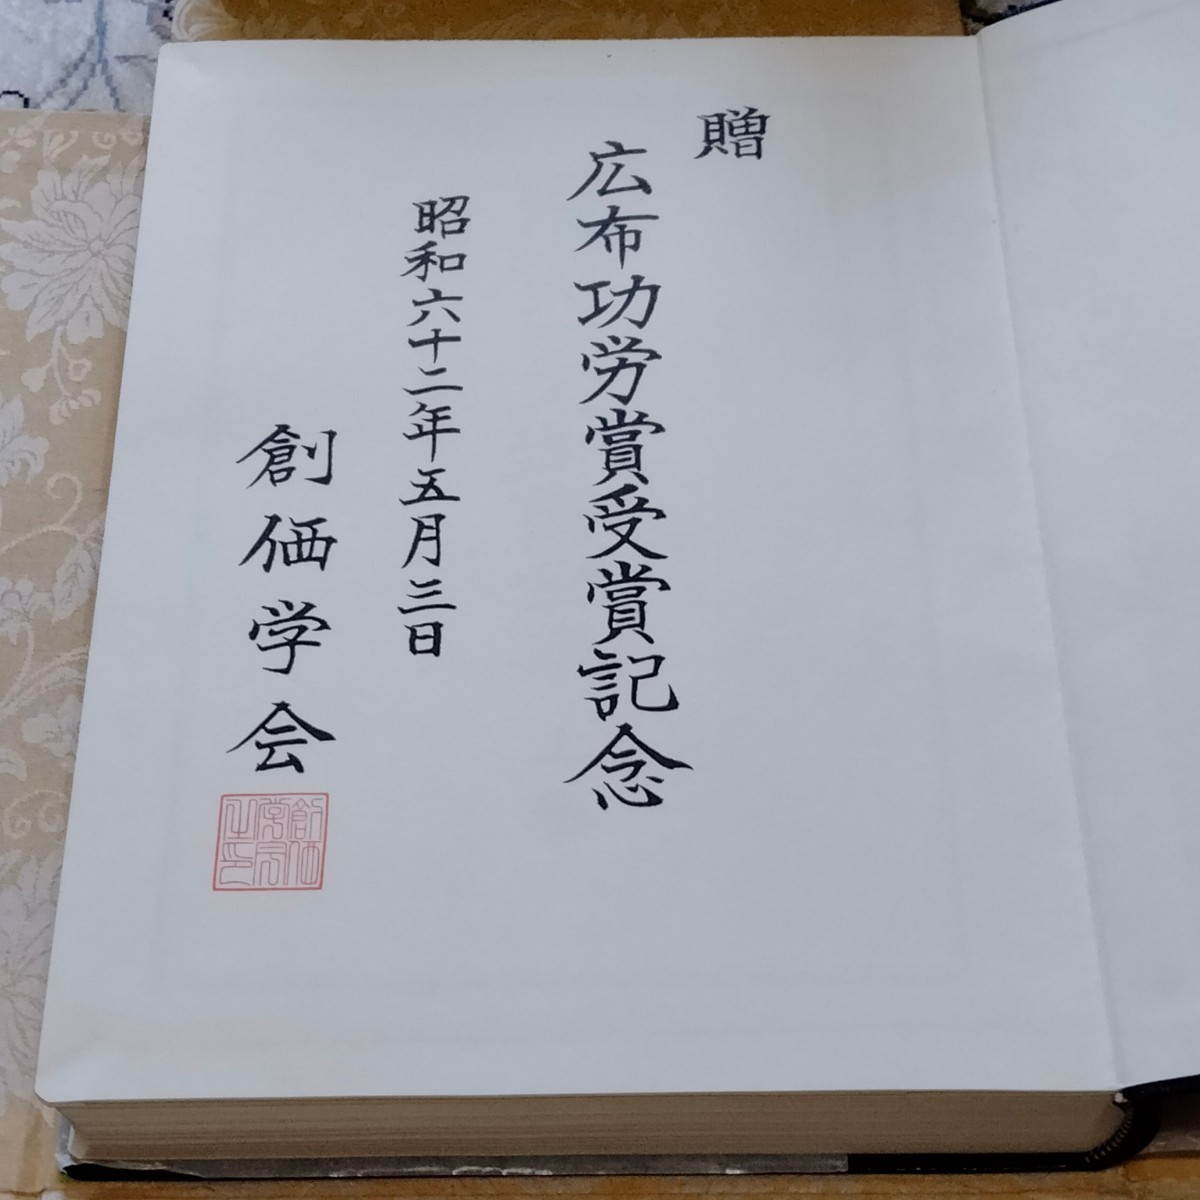 贈
広布功労賞受賞記念
昭和六十二年五月三日
創価学会
創価
学会
之印